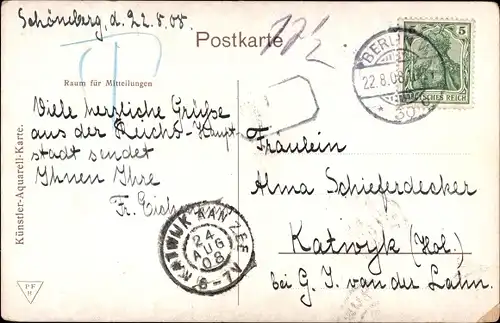 Schöneberg, d. 22.8.08.
Postkarte
Raum für Mitteilungen
Viele herzliche Grüße
aus der Reichs-Haupt
stadt sendet
Ihnen Ihre
Fr.
Künstler-Aquarell-Karte.
PF
H
5 5
DEUTSCHES REICH
BERLIN W.
22.8.08
* 30
KATWIJK AAN ZEE
24
AUG
08
Fräulein
Alma Schieferdecker
Katwyk (Hol.)
bei G. J. van der Lahn.
T